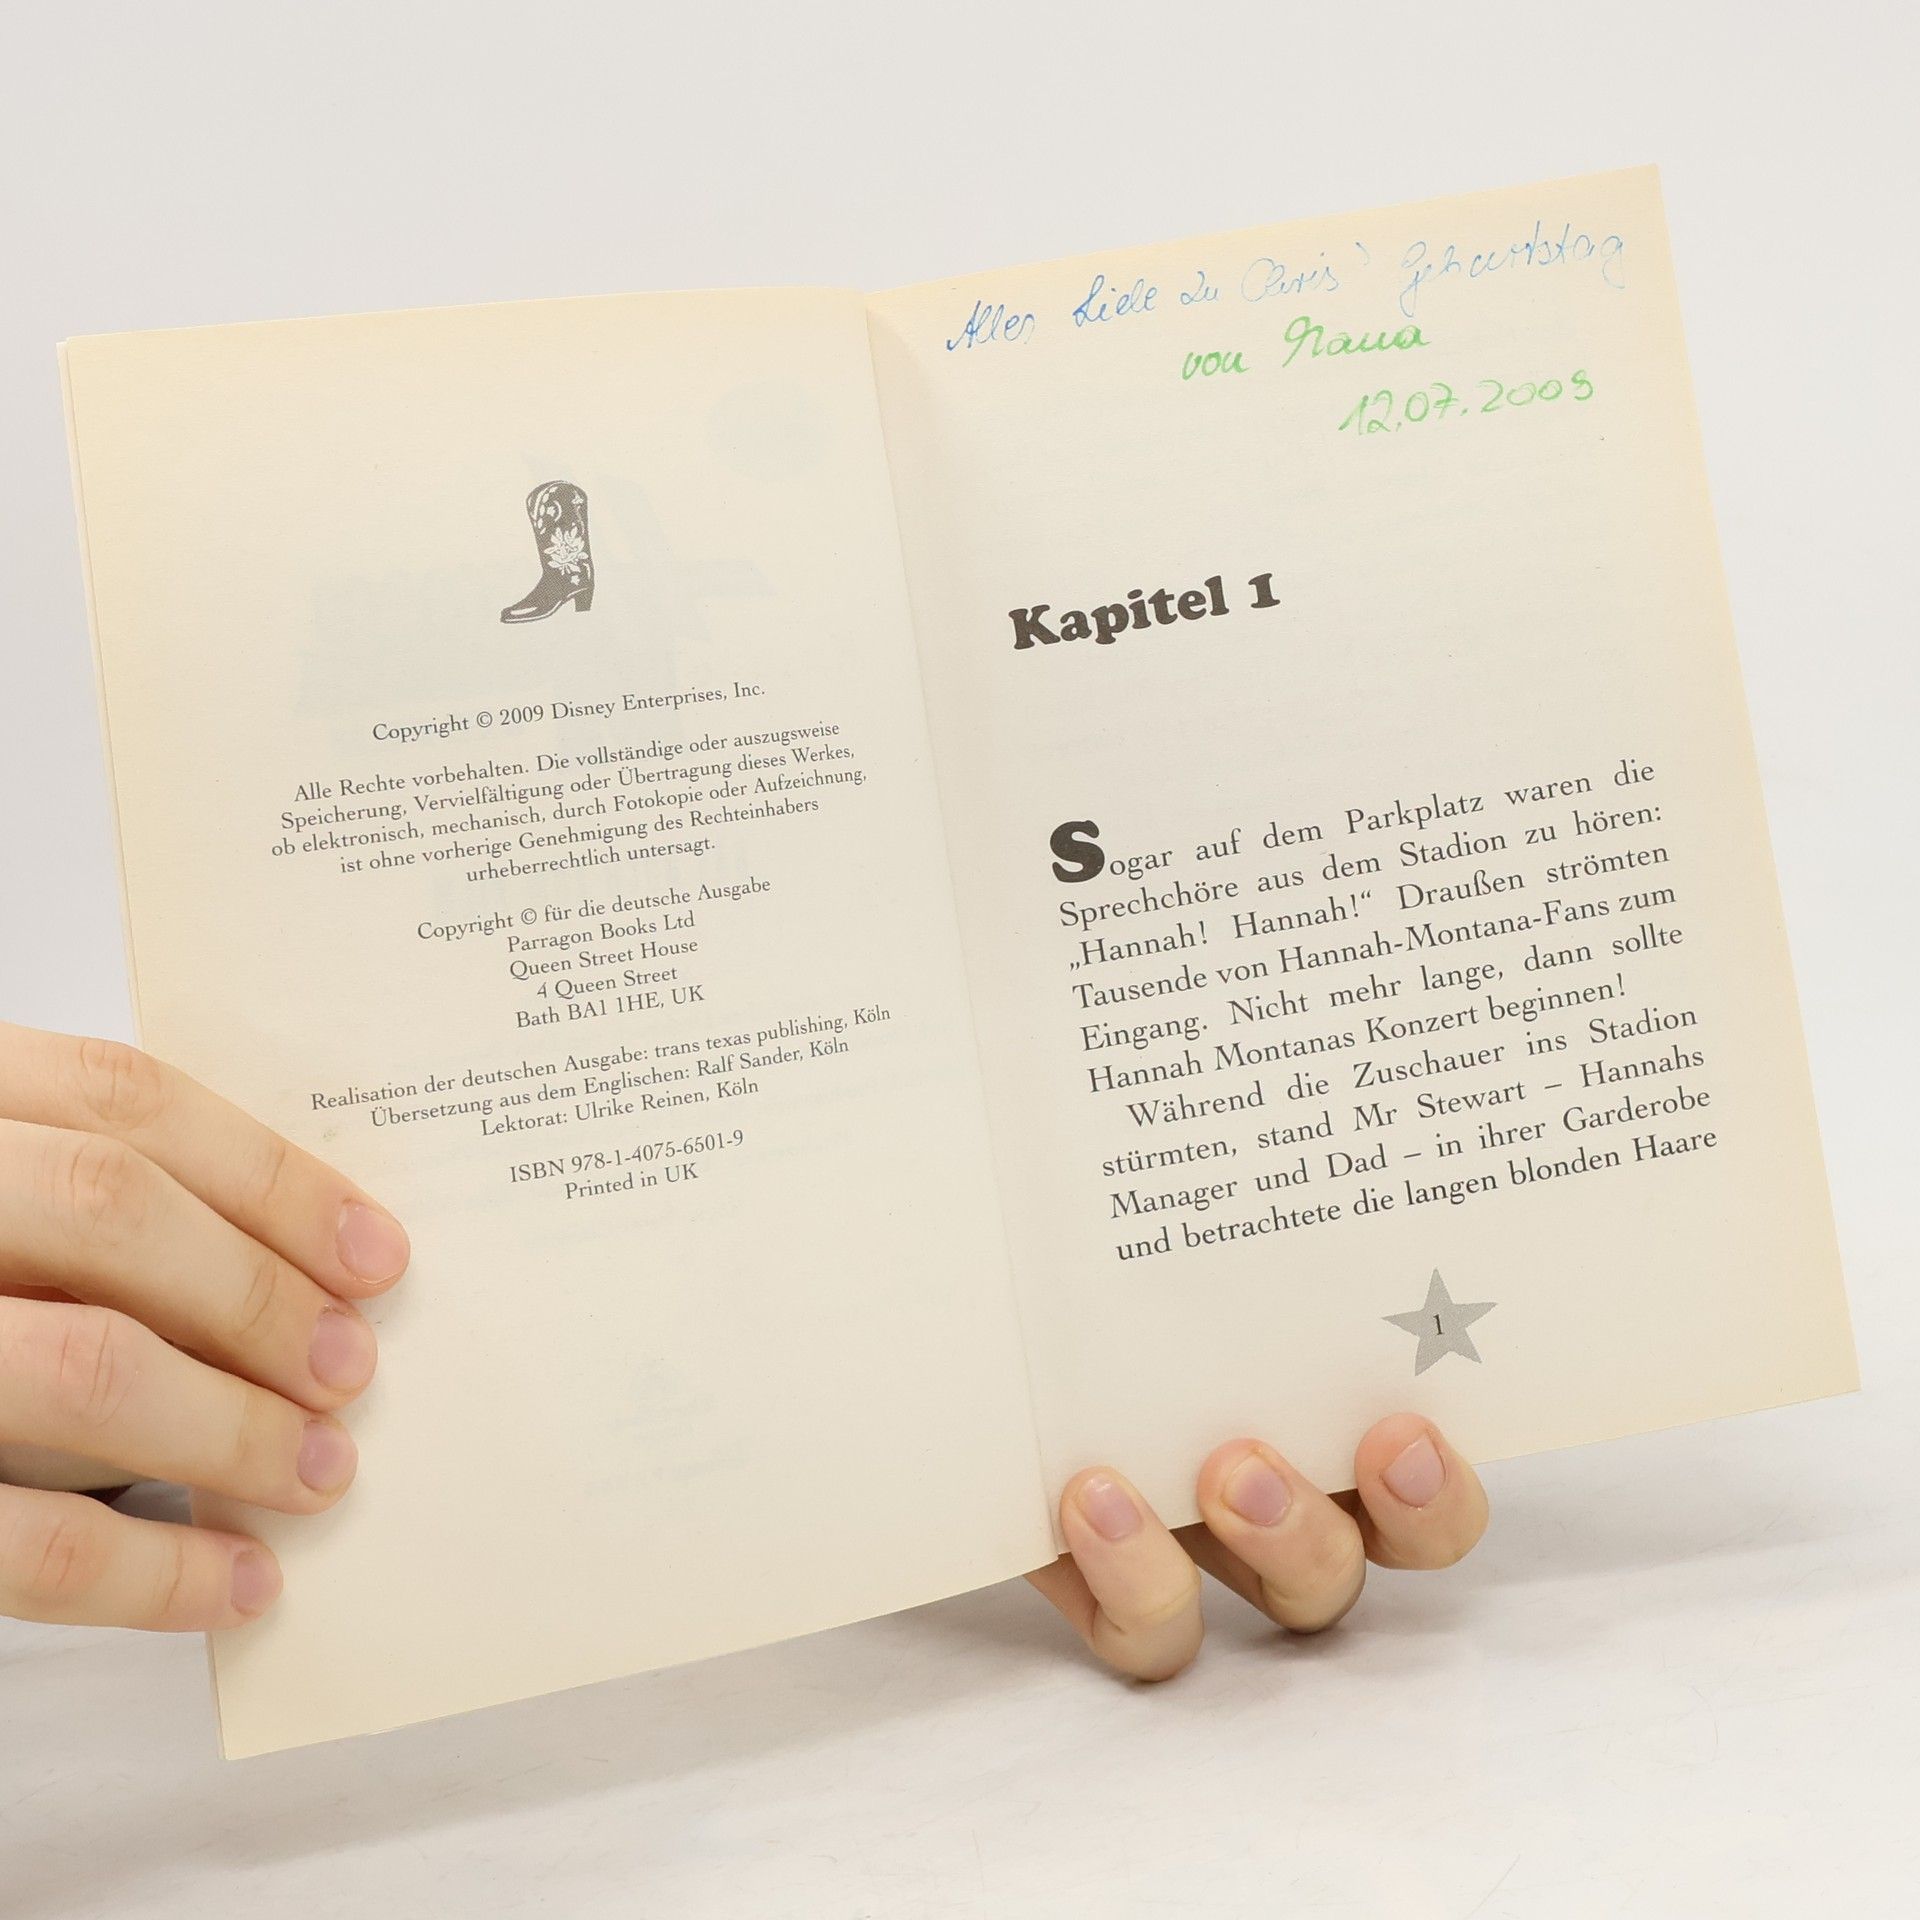 Copyright © 2009 Disney Enterprises, Inc.
Alle Rechte vorbehalten. Die vollständige oder auszugsweise
Speicherung, Vervielfältigung oder Übertragung dieses Werkes,
ob elektronisch, mechanisch, durch Fotokopie oder Aufzeichnung,
ist ohne vorherige Genehmigung des Rechteinhabers
urheberrechtlich untersagt.
Copyright © für die deutsche Ausgabe
Parragon Books Ltd
Queen Street House
4 Queen Street
Bath BA1 1HE, UK
Realisation der deutschen Ausgabe: trans texas publishing, Köln
Übersetzung aus dem Englischen: Ralf Sander, Köln
Lektorat: Ulrike Reinen, Köln
ISBN 978-1-4075-6501-9
Printed in UK
Alles Liebe zu Geburtstag
von
12.07.2009
Kapitel 1
Sogar auf dem Parkplatz waren die
Sprechchöre aus dem Stadion zu hören:
„Hannah! Hannah!“ Draußen strömten
Tausende von Hannah-Montana-Fans zum
Eingang. Nicht mehr lange, dann sollte
Hannah Montanas Konzert beginnen!
Während die Zuschauer ins Stadion
stürmten, stand Mr Stewart – Hannahs
Manager und Dad – in ihrer Garderobe
und betrachtete die langen blonden Haare
1